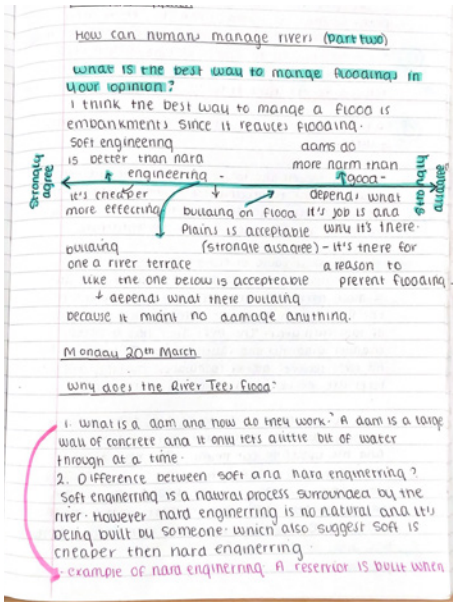 How can humans manage rivers (part two)
what is the best way to mange floodings in
your opinion?
I think the best way to mange a flood is
embankments since it reduces flooding.
Soft engineering
is better than hard
engineering -
dams do
more harm than
good-
strongly
agree
strongly
disagree
it's cheaper
more effecring
building on flood
Plains is acceptable
(strongle disagree) - it's there for
a reason to
prevent flooding.
depends what
it's job is and
why it's there.
building
one a river terrace
like the one below is accepteable
depends what there building
because it might no damage anything.
Monday 20th March
why does the River Tees flood?
1. what is a dam and how do they work? A dam is a large
wall of concrete and it only lets a little bit of water
through at a time.
2. Difference between soft and hard enginerring?
Soft enginerring is a natural process surrounded by the
river. However hard enginerring is no natural and it's
being built by someone. which also suggest soft is
cheaper then hard enginerring.
example of hard enginerring. A reservior is built when